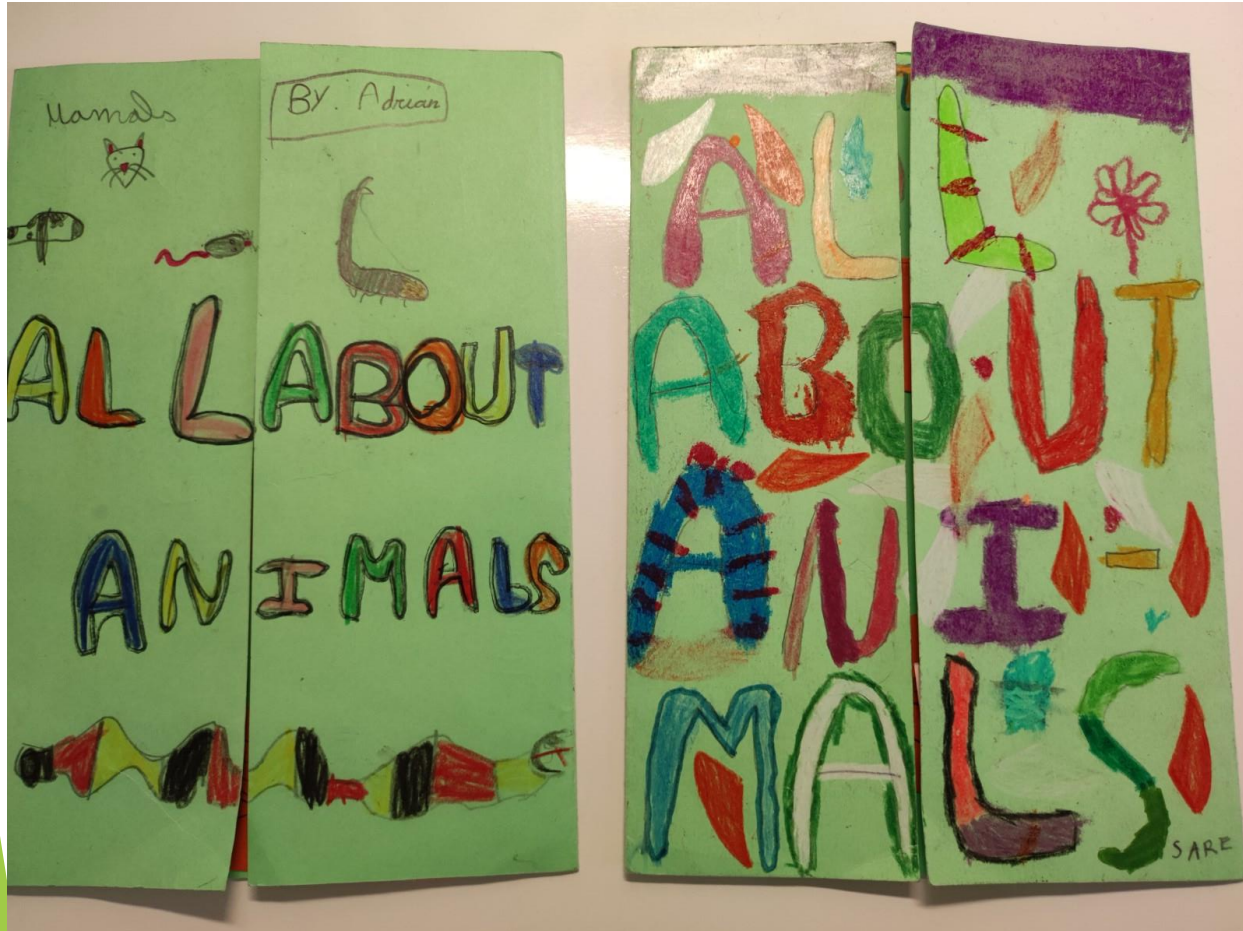 Mamals
BY. Adrián
ALL ABOUT
ANIMALS
ALL
ABOUT
ANI-
MALS
SARE